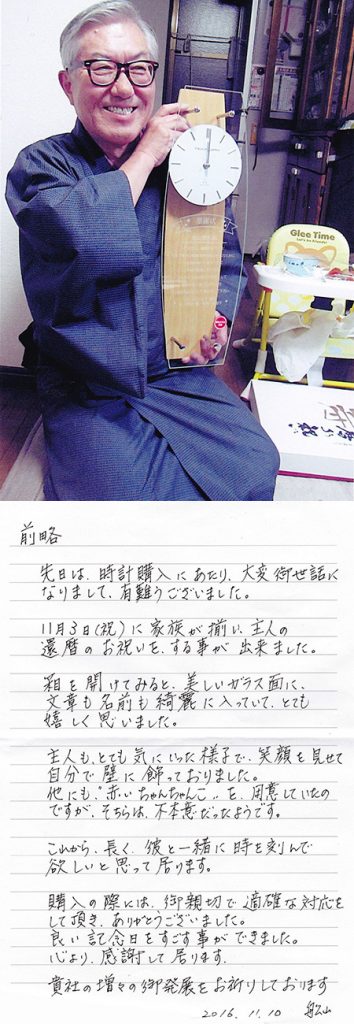 Glee Time
Let's be friends!
前略
先日は、時計購入にあたり、大変御世話に
なりまして、有難うございました。
11月3日(祝)に家族が揃い、主人の
還暦のお祝いを、する事が出来ました。
箱を開けてみると、美しいガラス面に、
文章も名前も綺麗に入っていて、とても
嬉しく思いました。
主人も、とても気にいった様子で、笑顔を見せて
自分で壁に飾っておりました。
他にも、"赤いちゃんちゃんこ"を、用意していたの
ですが、そちらは、不本意だったようです。
これから、長く、彼と一緒に時を刻んで
欲しいと思って居ります。
購入の際には、御親切で適確な対応を
して頂き、ありがとうございました。
良い記念日をすごす事ができました。
心より、感謝して居ります。
貴社の増々の御発展をお祈りしております
2016.11.10 舩山